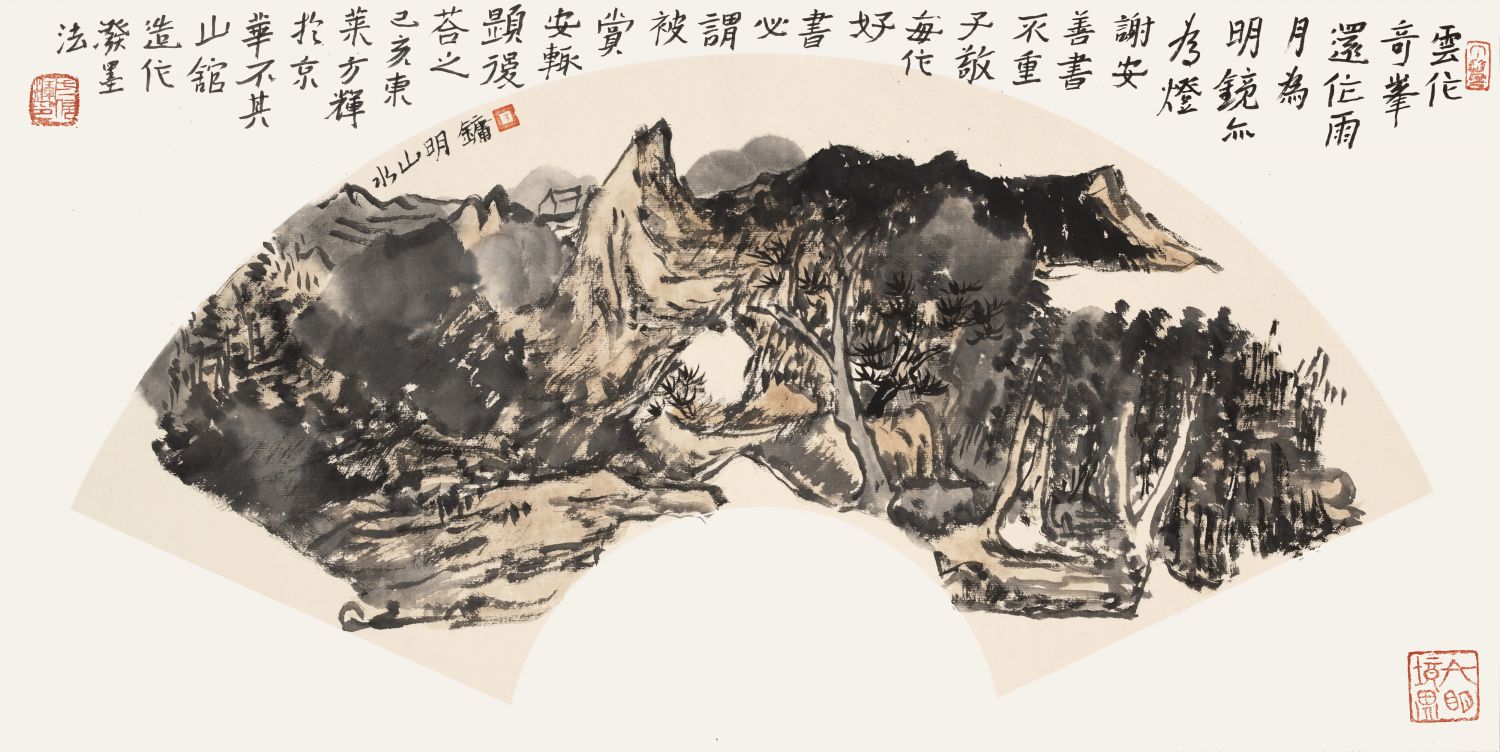 雲作
奇峯
還作雨
月為
明鏡亦
為燈
謝安
善書
不重
子敬
每作
好
書
必
謂
被
賞
安輒
題後
荅之
己亥東
萊方輝
於京
華不其
山舘
造作
潑墨
法
鏞明山水
大明境界